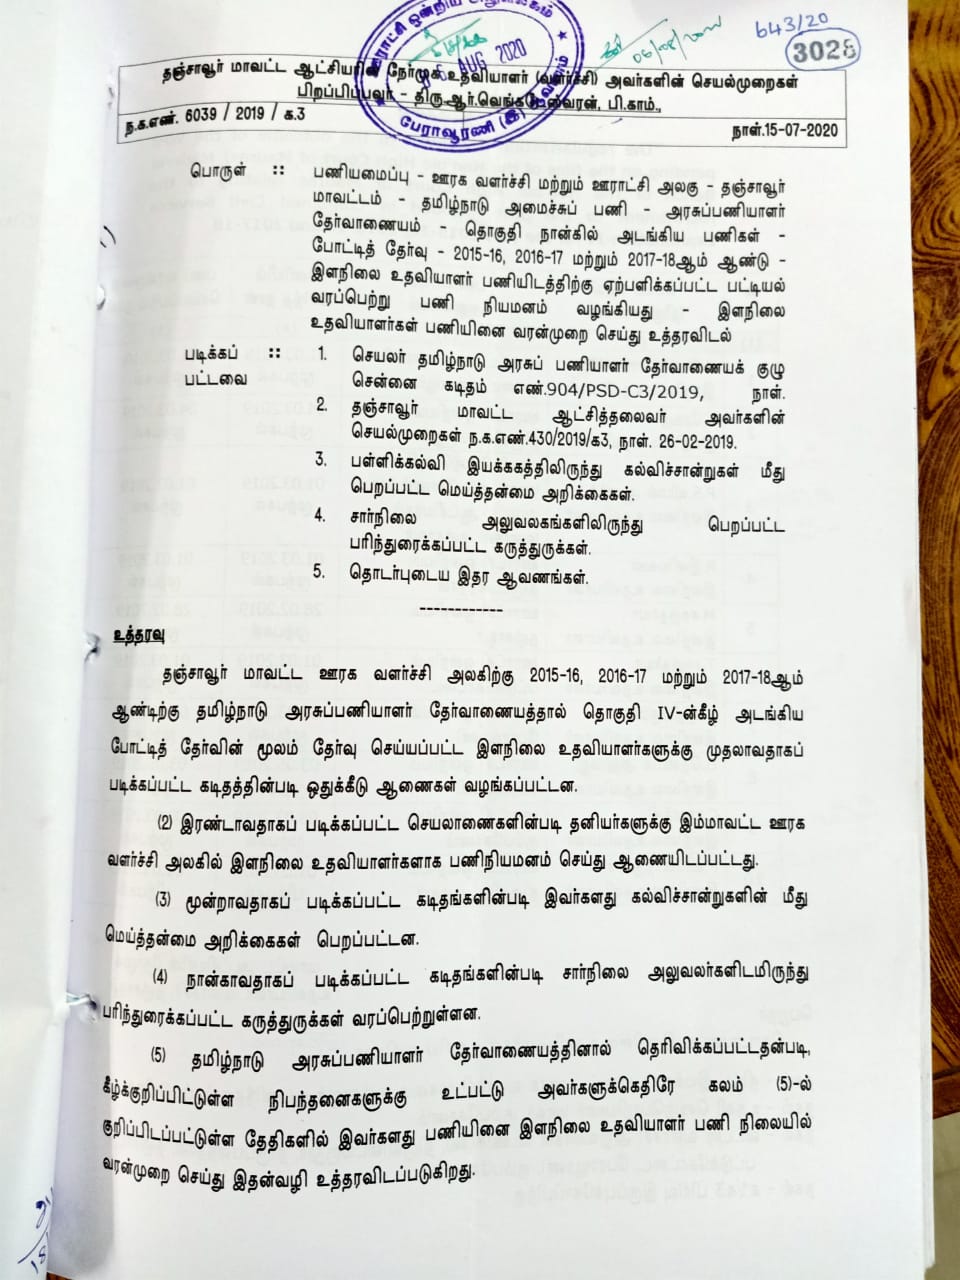 643/20
3028
06/08/2020
6 AUG 2020
பேராவூரணி (இ)
தஞ்சாவூர் மாவட்ட ஆட்சியரின் நேர்முக உதவியாளர் (வளர்ச்சி) அவர்களின் செயல்முறைகள்
பிறப்பிப்பவர் - திரு.ஆர்.வெங்கடேஸ்வரன், பி.காம்.,
ந.க.எண். 6039 / 2019 / க.3 நாள்.15-07-2020
பொருள் :: பணியமைப்பு - ஊரக வளர்ச்சி மற்றும் ஊராட்சி அலகு - தஞ்சாவூர்
மாவட்டம் - தமிழ்நாடு அமைச்சுப் பணி - அரசுப்பணியாளர்
தேர்வாணையம் - தொகுதி நான்கில் அடங்கிய பணிகள் -
போட்டித் தேர்வு - 2015-16, 2016-17 மற்றும் 2017-18ஆம் ஆண்டு -
இளநிலை உதவியாளர் பணியிடத்திற்கு ஏற்பளிக்கப்பட்ட பட்டியல்
வரப்பெற்று பணி நியமனம் வழங்கியது - இளநிலை
உதவியாளர்கள் பணியினை வரன்முறை செய்து உத்தரவிடல்
படிக்கப் :: 1. செயலர் தமிழ்நாடு அரசுப் பணியாளர் தேர்வாணையக் குழு
பட்டவை சென்னை கடிதம் எண்.904/PSD-C3/2019, நாள்.
2. தஞ்சாவூர் மாவட்ட ஆட்சித்தலைவர் அவர்களின்
செயல்முறைகள் ந.க.எண்.430/2019/க3, நாள். 26-02-2019.
3. பள்ளிக்கல்வி இயக்ககத்திலிருந்து கல்விச்சான்றுகள் மீது
பெறப்பட்ட மெய்த்தன்மை அறிக்கைகள்.
4. சார்நிலை அலுவலகங்களிலிருந்து பெறப்பட்ட
பரிந்துரைக்கப்பட்ட கருத்துருக்கள்.
5. தொடர்புடைய இதர ஆவணங்கள்.
------------
உத்தரவு
தஞ்சாவூர் மாவட்ட ஊரக வளர்ச்சி அலகிற்கு 2015-16, 2016-17 மற்றும் 2017-18ஆம்
ஆண்டிற்கு தமிழ்நாடு அரசுப்பணியாளர் தேர்வாணையத்தால் தொகுதி IV-ன்கீழ் அடங்கிய
போட்டித் தேர்வின் மூலம் தேர்வு செய்யப்பட்ட இளநிலை உதவியாளர்களுக்கு முதலாவதாகப்
படிக்கப்பட்ட கடிதத்தின்படி ஒதுக்கீடு ஆணைகள் வழங்கப்பட்டன.
(2) இரண்டாவதாகப் படிக்கப்பட்ட செயலாணைகளின்படி தனியர்களுக்கு இம்மாவட்ட ஊரக
வளர்ச்சி அலகில் இளநிலை உதவியாளர்களாக பணிநியமனம் செய்து ஆணையிடப்பட்டது.
(3) மூன்றாவதாகப் படிக்கப்பட்ட கடிதங்களின்படி இவர்களது கல்விச்சான்றுகளின் மீது
மெய்த்தன்மை அறிக்கைகள் பெறப்பட்டன.
(4) நான்காவதாகப் படிக்கப்பட்ட கடிதங்களின்படி சார்நிலை அலுவலர்களிடமிருந்து
பரிந்துரைக்கப்பட்ட கருத்துருக்கள் வரப்பெற்றுள்ளன.
(5) தமிழ்நாடு அரசுப்பணியாளர் தேர்வாணையத்தினால் தெரிவிக்கப்பட்டதன்படி,
கீழ்க்குறிப்பிட்டுள்ள நிபந்தனைகளுக்கு உட்பட்டு அவர்களுக்கெதிரே கலம் (5)-ல்
குறிப்பிடப்பட்டுள்ள தேதிகளில் இவர்களது பணியினை இளநிலை உதவியாளர் பணி நிலையில்
வரன்முறை செய்து இதன்வழி உத்தரவிடப்படுகிறது.